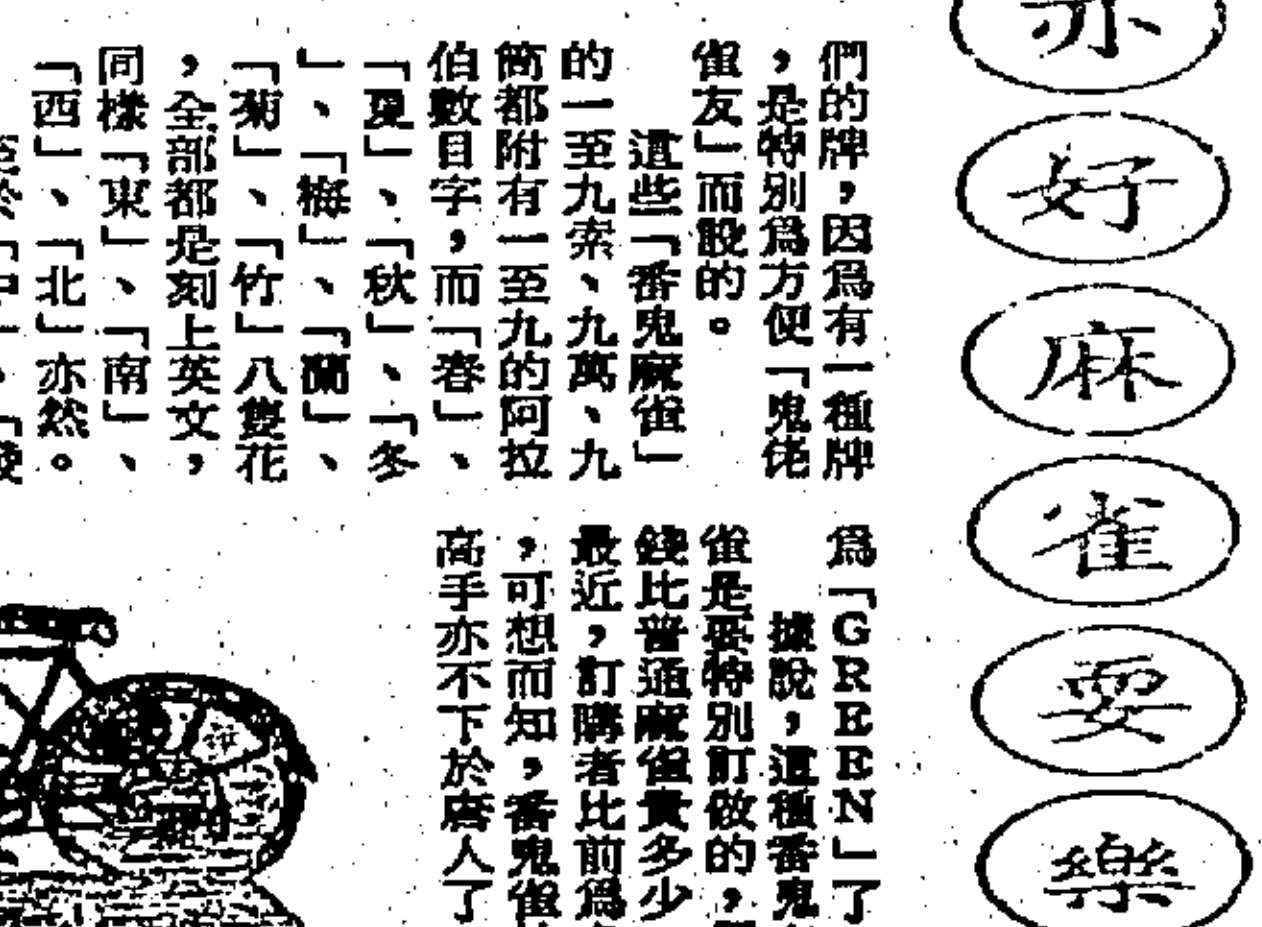 亦好麻雀耍樂
們的牌，因爲有一種牌
，是特別爲方便「鬼佬
雀友」而設的。
這些「番鬼麻雀」
的一至九索、九萬、九
筒都附有一至九的阿拉
伯數目字，而「春」、
「夏」、「秋」、「冬
」、「梅」、「蘭」、
「菊」、「竹」八隻花
，全部都是刻上英文，
同樣「東」、「南」、
「西」、「北」亦然。
至於「中」、「發
爲「GREEN」了
據說，這種番鬼
雀是要特別訂做的，
錢比普通麻雀貴多少
最近，訂購者比前爲
，可想而知，番鬼雀
高手亦不下於唐人了